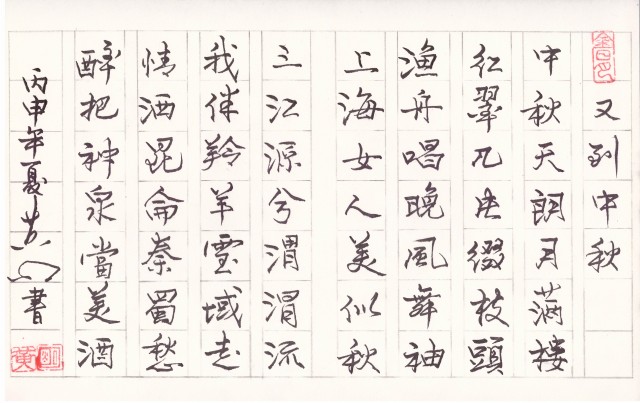 又到中秋
中秋天朗月满楼
红翠几点缀枝頭
渔舟唱晚風舞袖
上海女人美似秋
三江源兮渭渭流
我伴羚羊雪域走
情洒昆侖秦蜀愁
醉把神泉當美酒
丙申年夏書